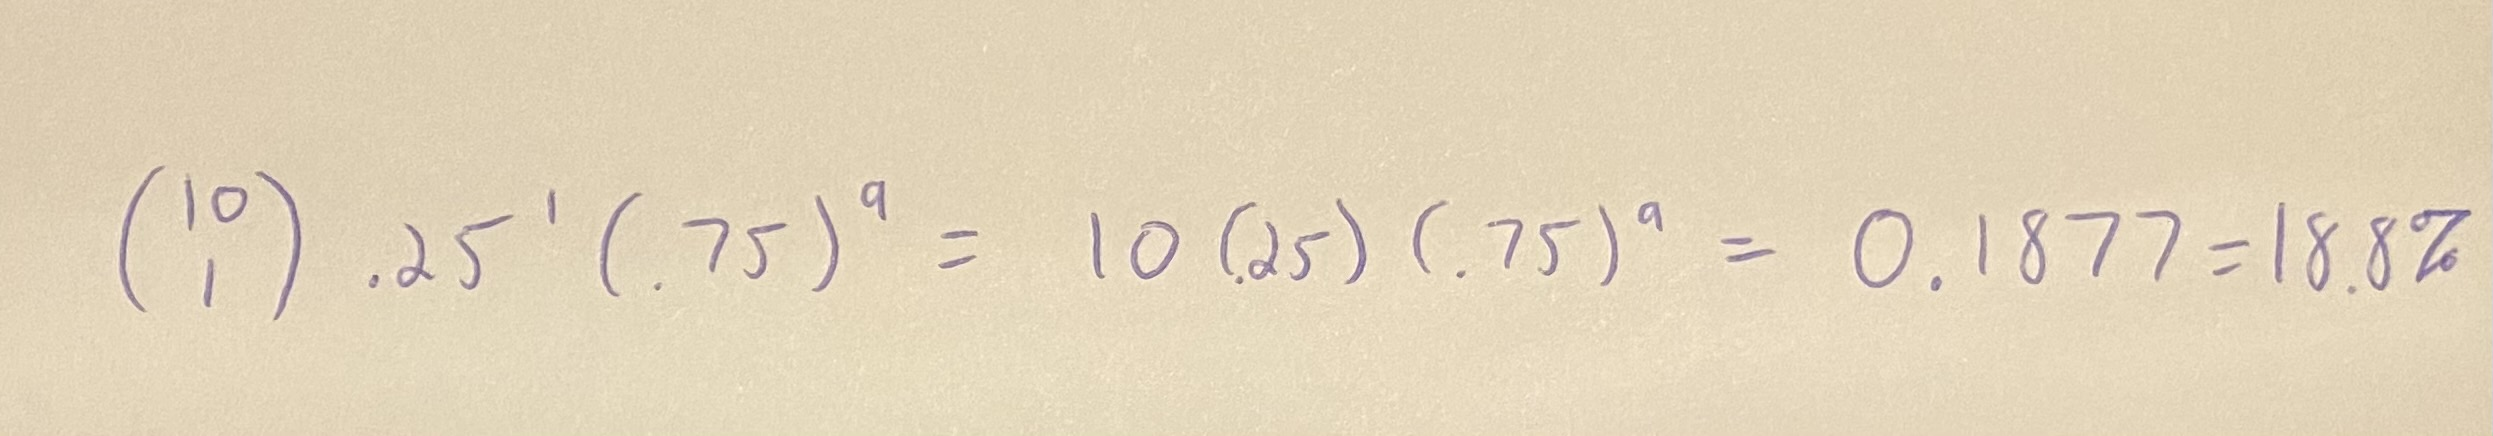 (10 1) .25¹ (.75)⁹ = 10 (.25) (.75)⁹ = 0.1877 = 18.8%